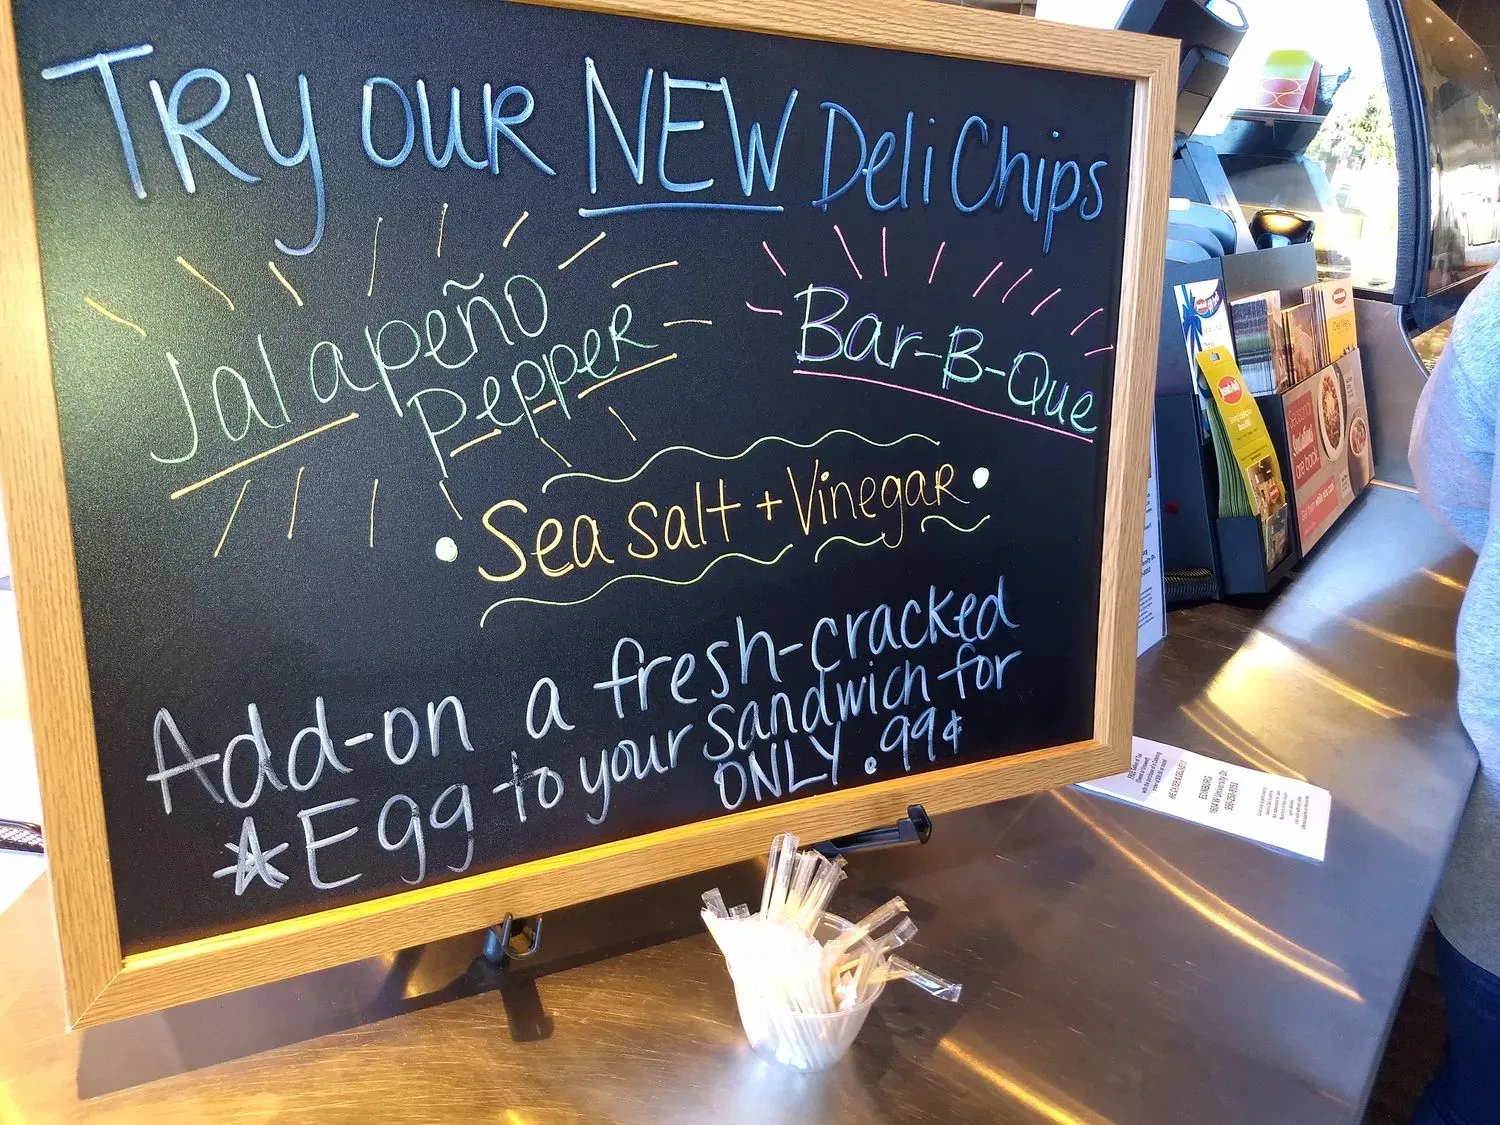 TRy ouR NEW Deli Chips
Jalapeño
PeppeR
Bar-B-Que
Sea salt + VinegaR
Add-on a fresh-cracked
Egg to your sandwich for
ONLY .99¢
Seasonal
are back.
EDINBURG